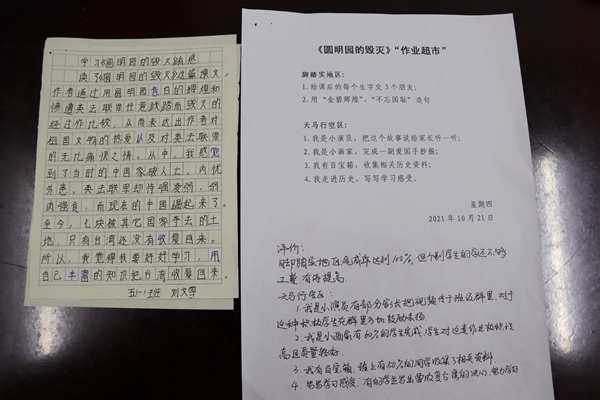 学习《圆明园的毁灭》有感
读了《圆明园的毁灭》这篇课文
作者通过用圆明园昔日的辉煌和
惨遭英法联军任意践踏而毁灭的
经过作比较，从而表达出作者对
祖国文物的热爱以及对英法联军
的无比痛恨之情。从中，我感觉
到了当时的中国家破人亡，内忧
外患，英法联军却恃强凌弱、弱
肉强食，而现在的中国崛起来了
至今，七块被其它国家手去的土
地，只有台湾还没有收复回来。
所以，我觉得我要好好学习，用
自己丰富的知识把台湾收复回来。
五(一)班 刘文雪
《圆明园的毁灭》“作业超市”
脚踏实地区：
1. 给课后的每个生字交 3 个朋友；
2. 用“金碧辉煌”、“不忘国耻”造句
天马行空区：
1. 我是小演员，把这个故事说给家长听一听；
2. 我是小画家，完成一副爱国手抄报；
3. 我有百宝箱，收集相关历史资料；
4. 我走进历史，写写学习感受。
星期四
2021 年 10 月 21 日
评价：
脚踏实地区完成率达到100%，但个别学生的字还不够
工整，有待提高。
天马行空区：
1. 我是小演员有部分家长把视频发于班级群里，对于
这种积极学生在群里予以鼓励表扬。
2. 我是小画家有50名的学生完成，学生对这类作业极积性
高且质量较好。
3. 我有百宝箱，班上有50名的同学收集了相关资料。
4. 学习感受，有的学生写出要收复台湾的决心，努力学习